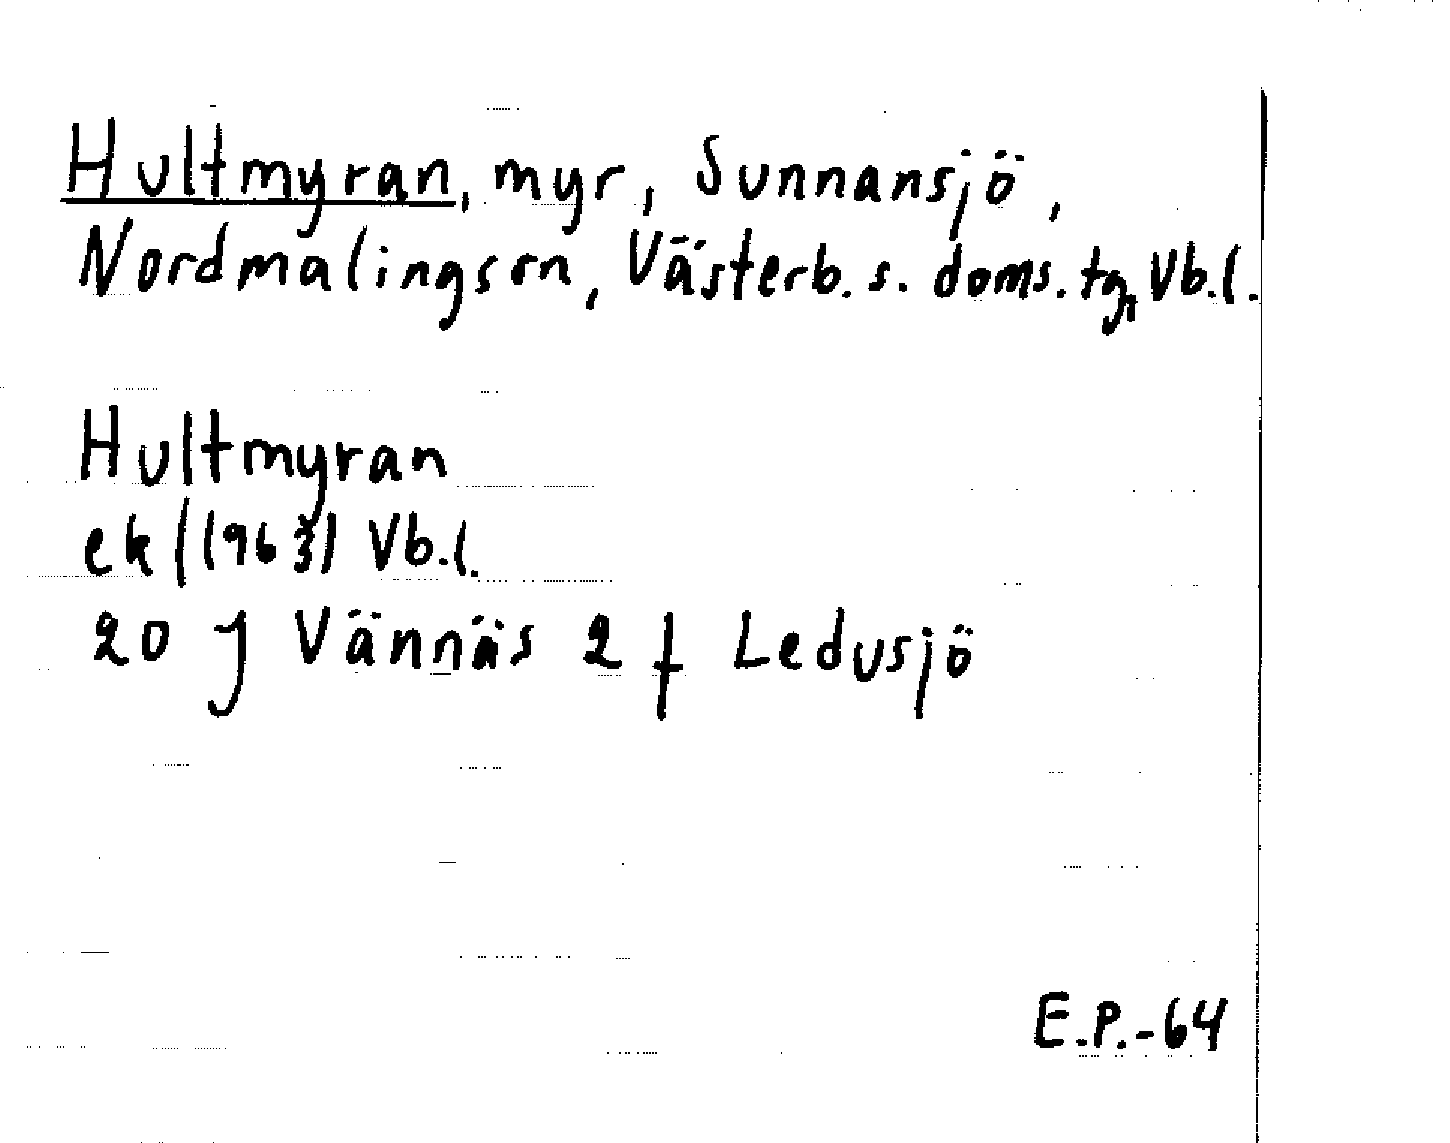 Hultmyran, myr, Sunnansjö,
Nordmalingssn, Västerb. s. doms. tg, Vb.l.
Hultmyran
ek (1963) Vb.l.
20 J Vännäs 2 f Ledusjö
E.P.-64